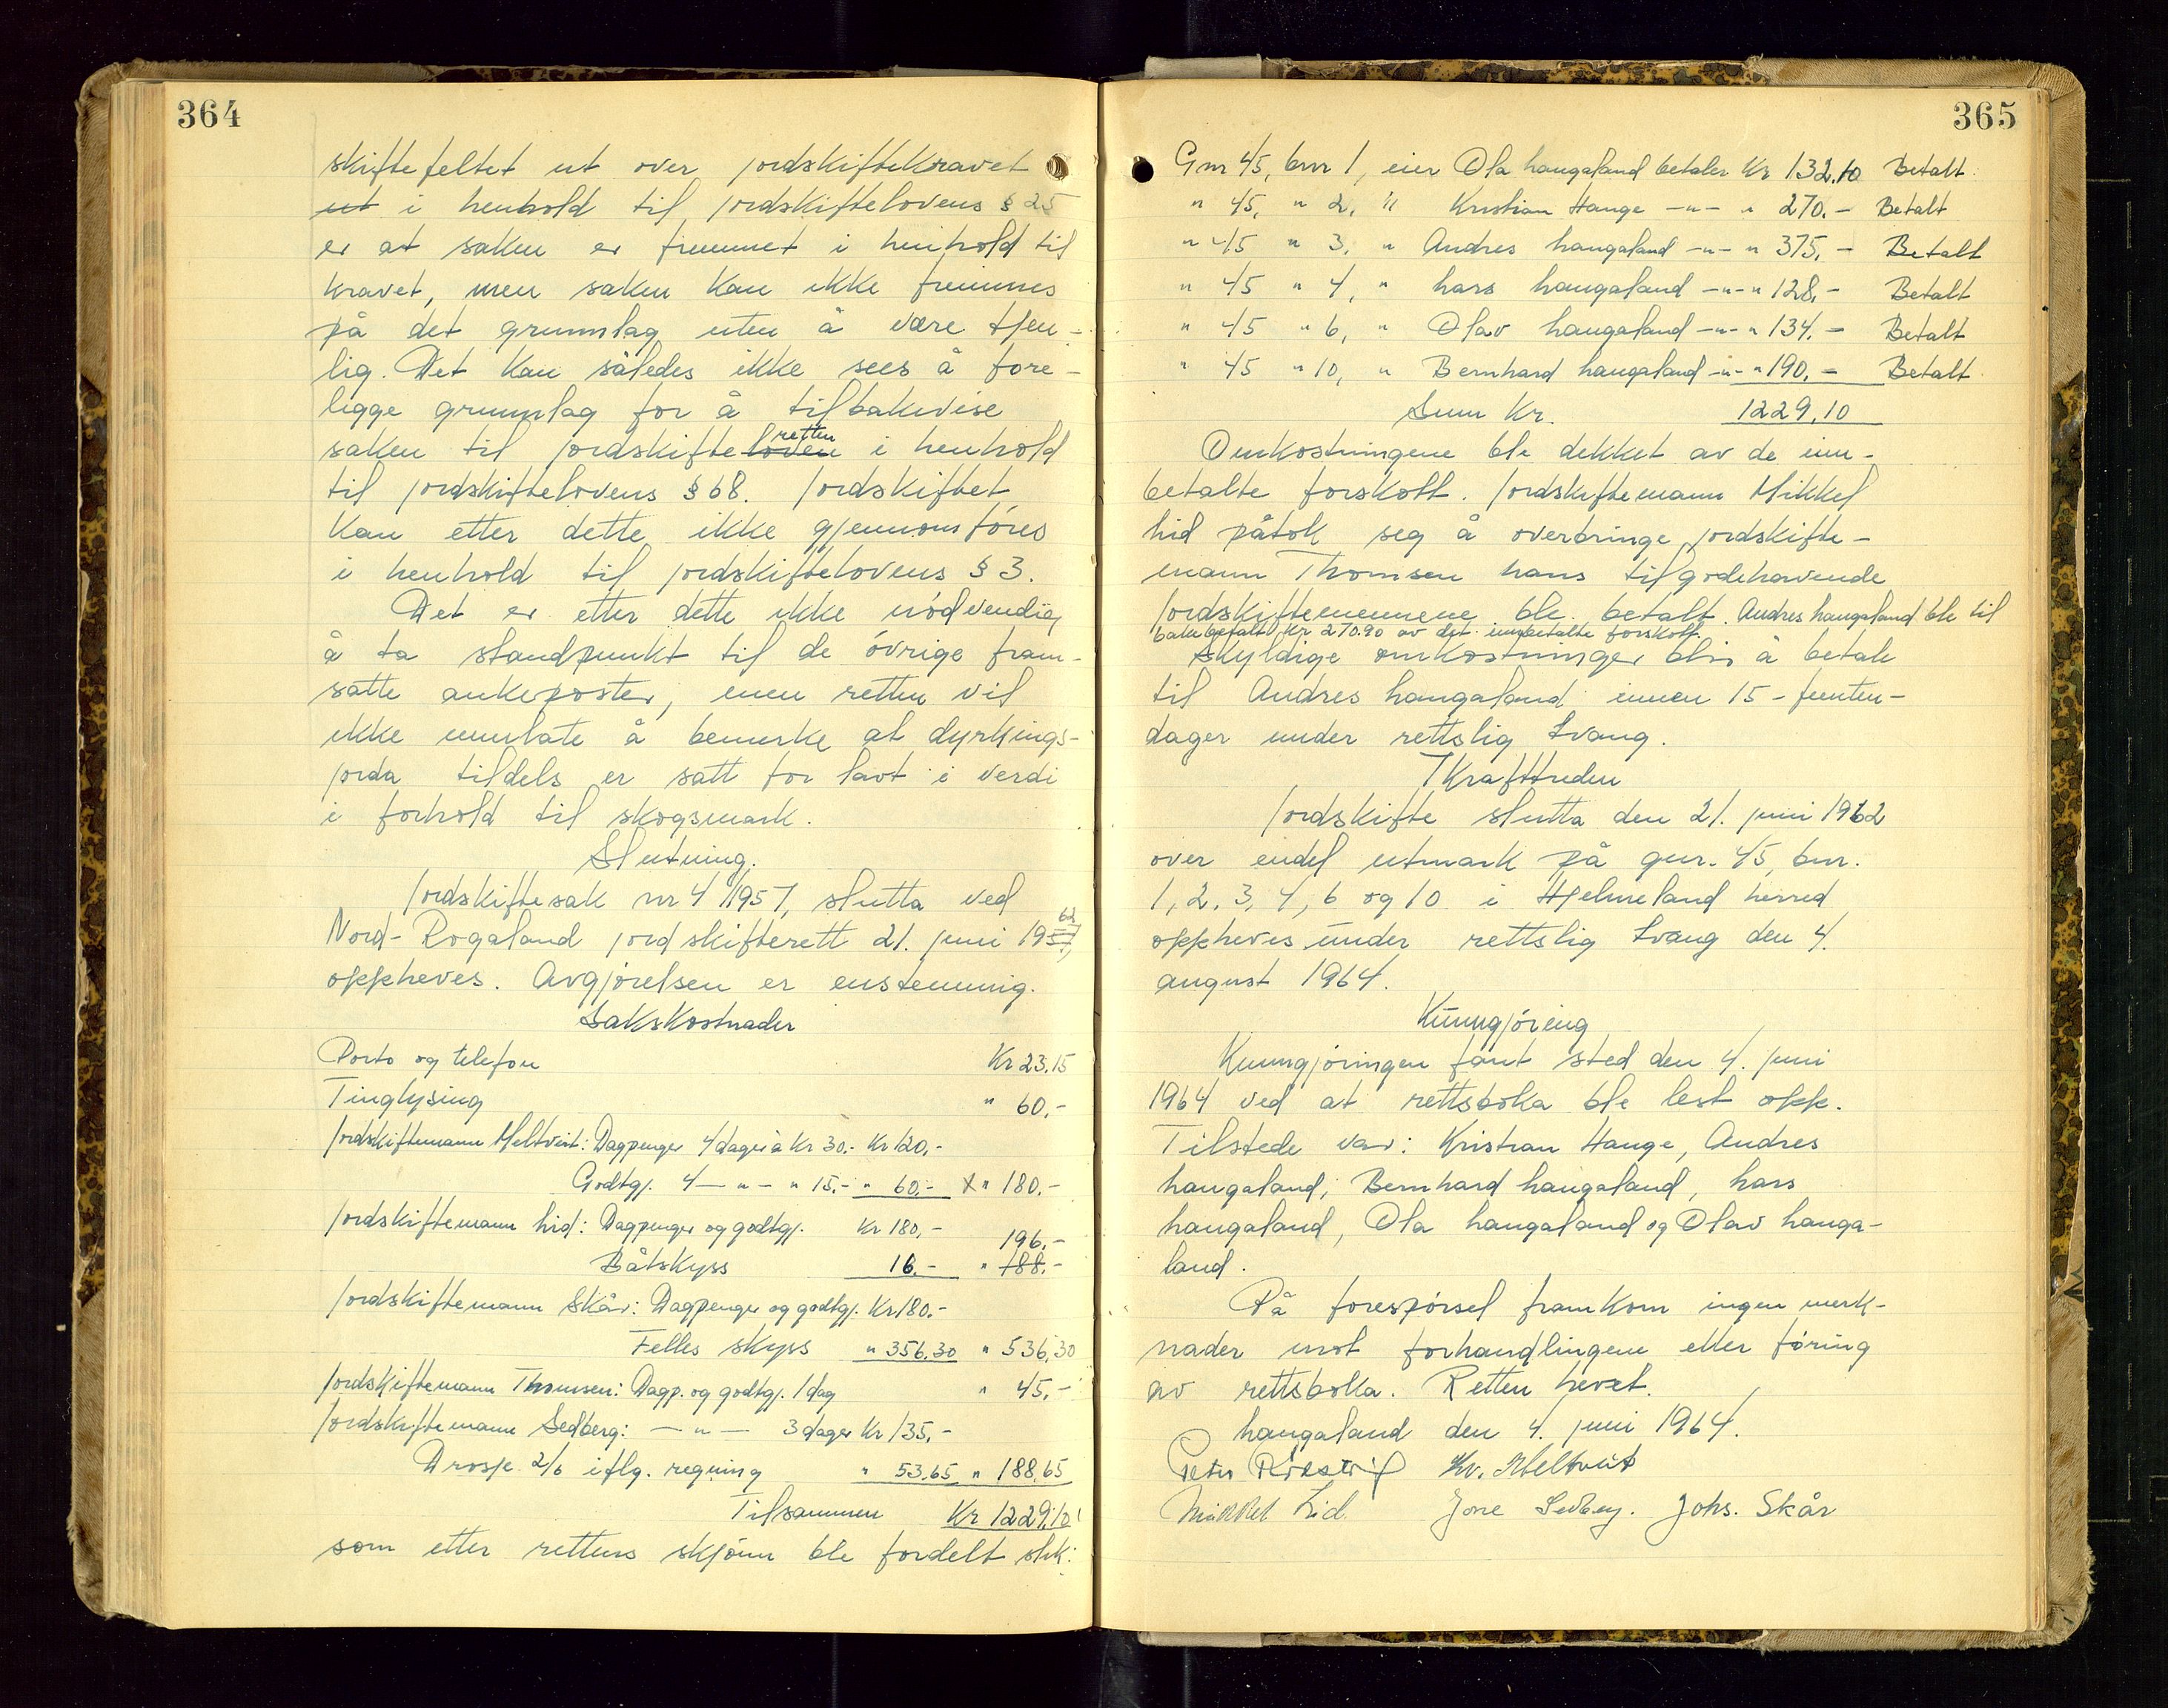 364
skiftefeltet ut over jordskiftekravet
ut i henhold til jordskiftelovens § 25
er at saken er fremmet i henhold til
kravet, men saken kan ikke fremmes
på det grunnlag uten å være tjen-
lig. Det kan således ikke sees å fore-
ligge grunnlag for å tilbakevise
saken til jordskifteloven retten i henhold
til jordskiftelovens § 68. Jordskiftet
kan etter dette ikke gjennomføres
i henhold til jordskiftelovens § 3.
Det er etter dette ikke nødvendig
å ta standpunkt til de øvrige fram-
satte ankeposter, men retten vil
ikke unnlate å bemerke at dyrkings-
jorda tildels er satt for lavt i verdi
i forhold til skogsmark.
Slutning.
Jordskiftesak nr 4/1957, slutta ved
Nord-Rogaland jordskifterett 21. juni 1957 62
oppheves. Avgjørelsen er enstemmig.
Sakskostnader
Porto og telefon Kr 23.15
Tinglysing " 60,-
Jordskiftemann Meltveit: Dagpenger 4 dager à Kr 30.- Kr 120,-
Godtgj. 4 — " — " 15.- " 60.- " 180.-
Jordskiftemann Lid: Dagpenger og godtgj. Kr 180,- 196.-
Båtskyss 16.- " 188.-
Jordskiftemann Skår: Dagpenger og godtgj. Kr 180.-
Felles skyss " 356.30 " 536,30
Jordskiftemann Thomsen: Dagp. og godtgj. 1 dag " 45.-
Jordskiftemann Sedberg: — " — 3 dager Kr 135,-
Drosje 2/6 iflg. regning " 53,65 " 188,65
Tilsammen Kr 1229.10
som etter rettens skjønn ble fordelt slik:
365
Gnr 45, bnr 1, eier Ola Laugaland betaler Kr 132.10 Betalt
" 45, " 2, " Kristian Hauge -"- " 270.- Betalt
" 45 " 3, " Andres Laugaland -"- " 375,- Betalt
" 45 " 4, " Lars Laugaland -"- " 128,- Betalt
" 45 " 6, " Olav Laugaland -"- " 134.- Betalt
" 45 " 10, " Bernhard Laugaland -"- " 190,- Betalt
Sum Kr. 1229,10
Omkostningene ble dekket av de inn-
betalte forskott. Jordskiftemann Mikkel
Lid påtok seg å overbringe jordskifte-
mann Thomsen hans tilgodehavende
Jordskiftemennene ble betalt. Andres Laugaland ble til
bakebetalt Kr 270.90 av det innbetalte forskott.
Skyldige omkostninger blir å betale
til Andres Laugaland innen 15 - femten -
dager under rettslig tvang.
Ikrafttreden
Jordskifte slutta den 21. juni 1962
over endel utmark på gnr. 45, bnr.
1, 2, 3, 4, 6 og 10 i Hjelmeland herred
oppheves under rettslig tvang den 4.
august 1964.
Kunngjøring
Kunngjøringen fant sted den 4. juni
1964 ved at rettsboka ble lest opp.
Tilstede var: Kristian Hauge, Andres
Laugaland, Bernhard Laugaland, Lars
Laugaland, Ola Laugaland og Olav Lauga-
land.
På forespørsel framkom ingen merk-
nader mot forhandlingene eller føring
av rettsboka. Retten hevet.
Laugaland den 4. juni 1964.
Peter Kv. Meltveit
Mikkel Lid. Jone Sedberg. Johs. Skår